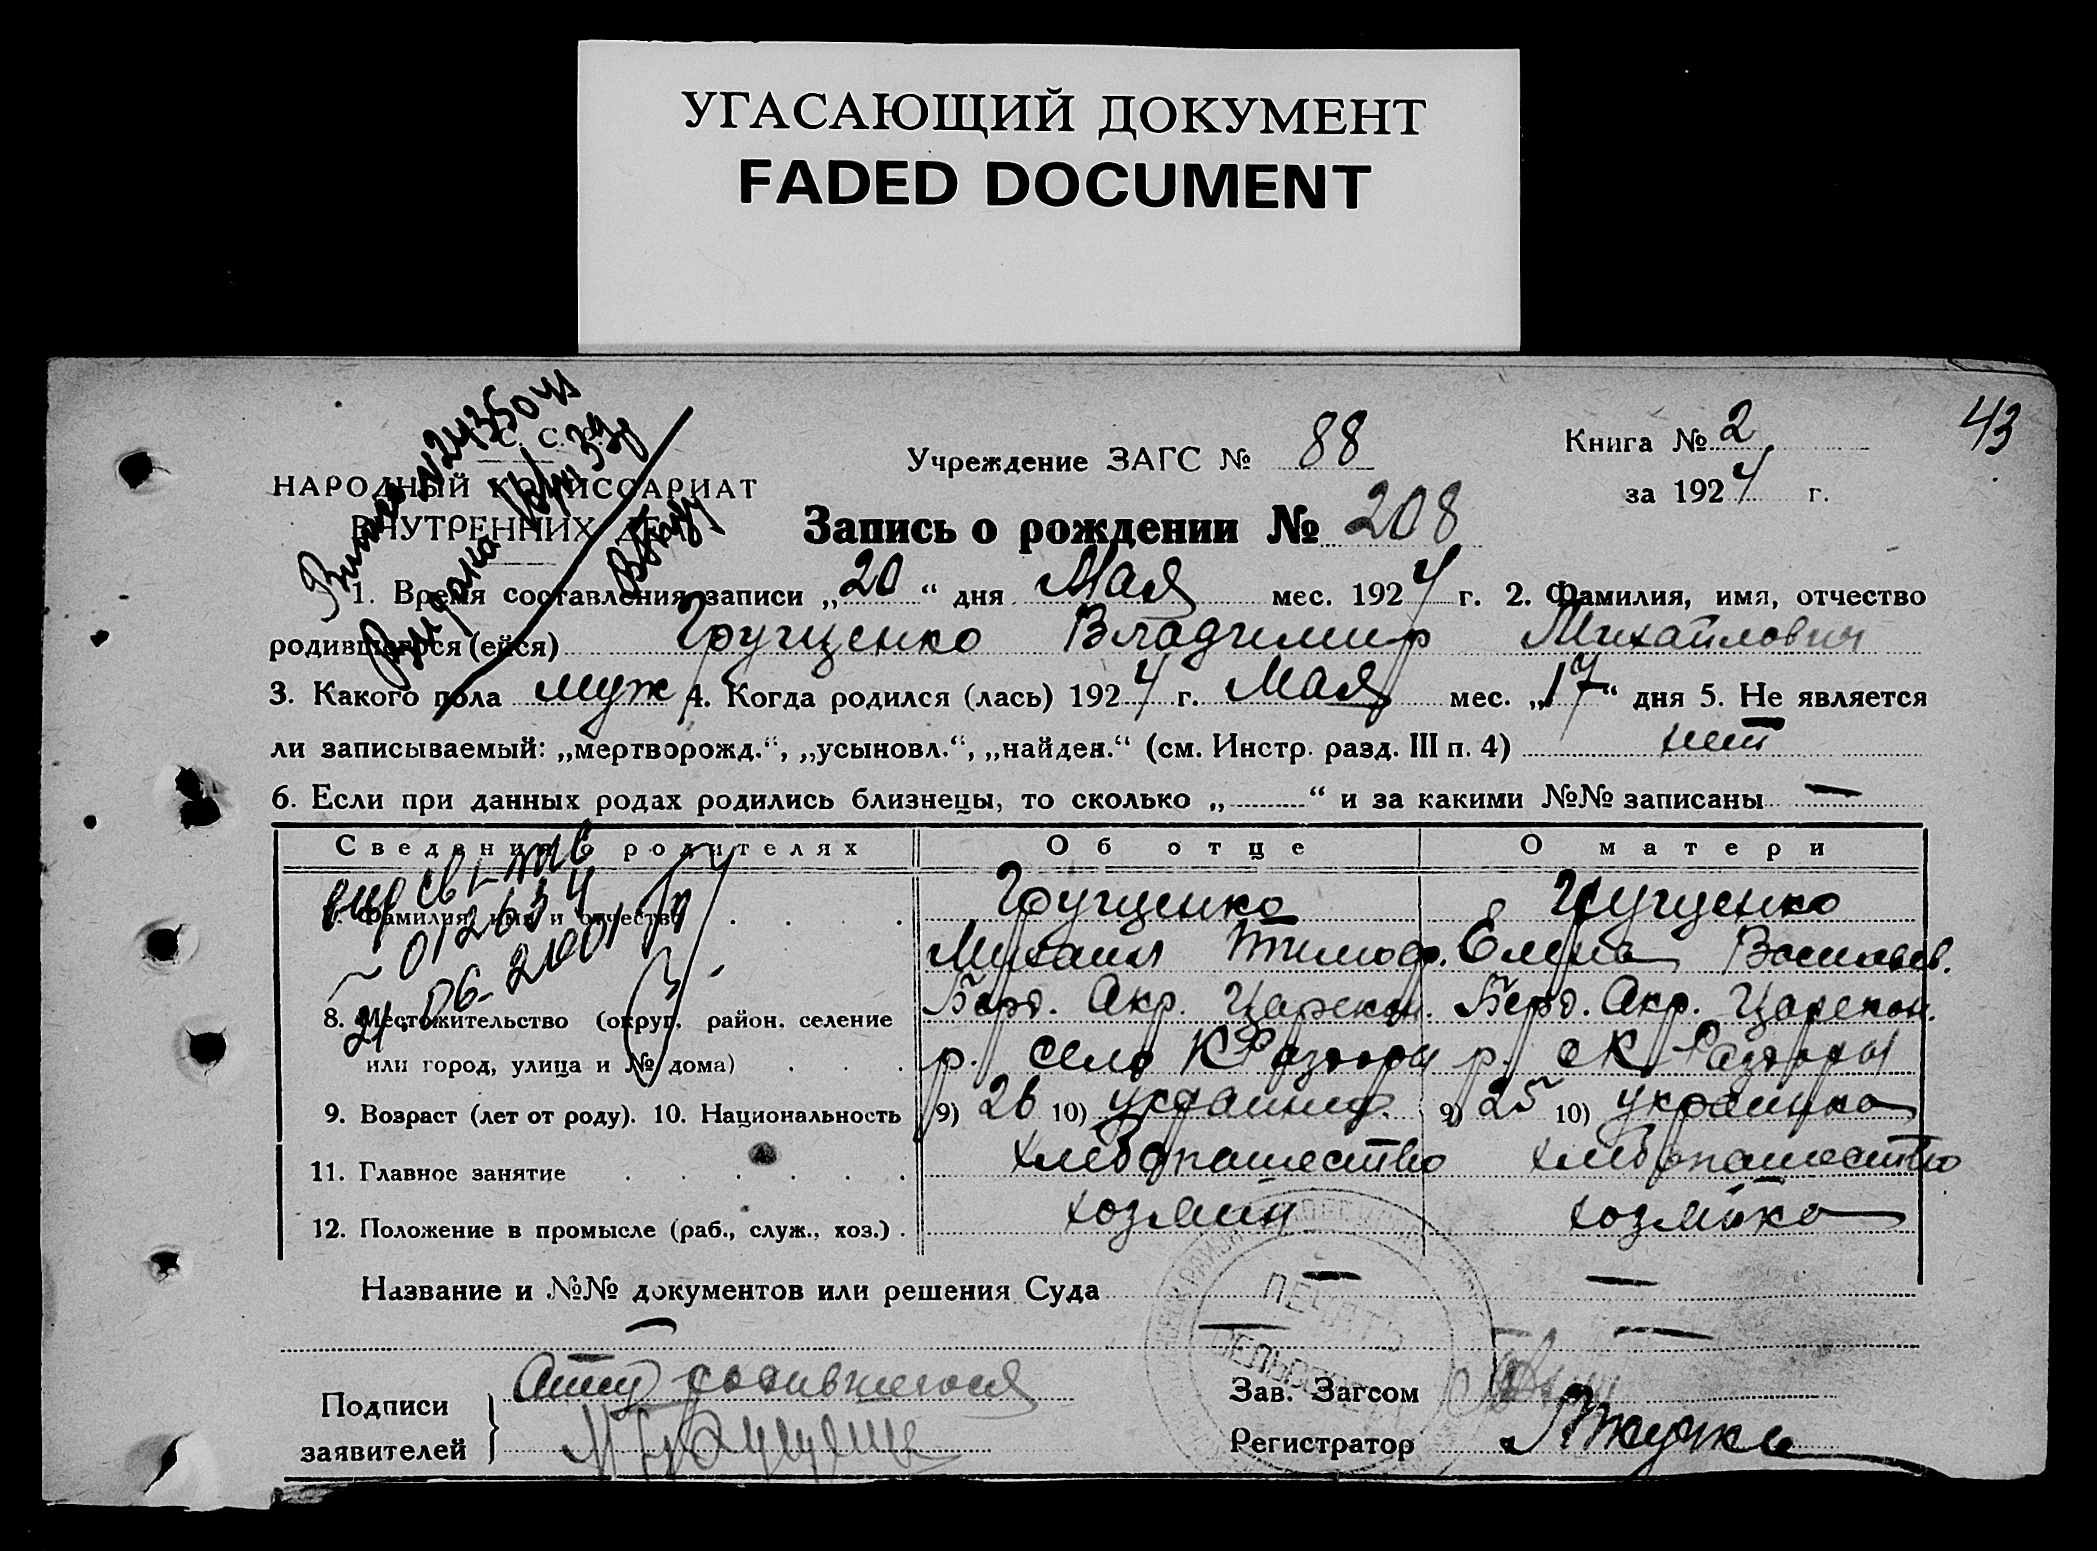 УГАСАЮЩИЙ ДОКУМЕНТ
FADED DOCUMENT
43
С. С.
НАРОДНЫЙ КОМИССАРИАТ
ВНУТРЕННИХ ДЕЛ
Учреждение ЗАГС № 88
Книга № 2
за 1924 г.
Запись о рождении № 208
1. Время составления записи „20“ дня Мая мес. 1924 г. 2. Фамилия, имя, отчество
родившегося (ейся) Грущенко Владимир Михайлович
3. Какого пола муж 4. Когда родился (лась) 1924 г. Мая мес. „17“ дня 5. Не является
ли записываемый: „мертворожд.“, „усыновл.“, „найден.“ (см. Инстр. разд. III п. 4) нет
6. Если при данных родах родились близнецы, то сколько „ “ и за какими №№ записаны —
Сведения о родителях Об отце О матери
выд св-во
012634
21.06.2001
7. Фамилия, имя и отчество Грущенко Грущенко
Михаил Тимоф. Елена Васильев.
8. Местожительство (округ, район, селение Берд. Окр. Царекон. Берд. Окр. Царекон.
или город, улица и № дома) р. село К Раздоры р. с К Раздоры
9. Возраст (лет от роду). 10. Национальность 9) 26 10) украинец 9) 25 10) украинка
11. Главное занятие хлебопашество хлебопашество
12. Положение в промысле (раб., служ., хоз.) хозяин хозяйка
Название и №№ документов или решения Суда — —
— — —
ПЕЧАТЬ
СЕЛЬСОВЕТА
Подписи заявителей Отец родившегося
Зав. Загсом
Регистратор